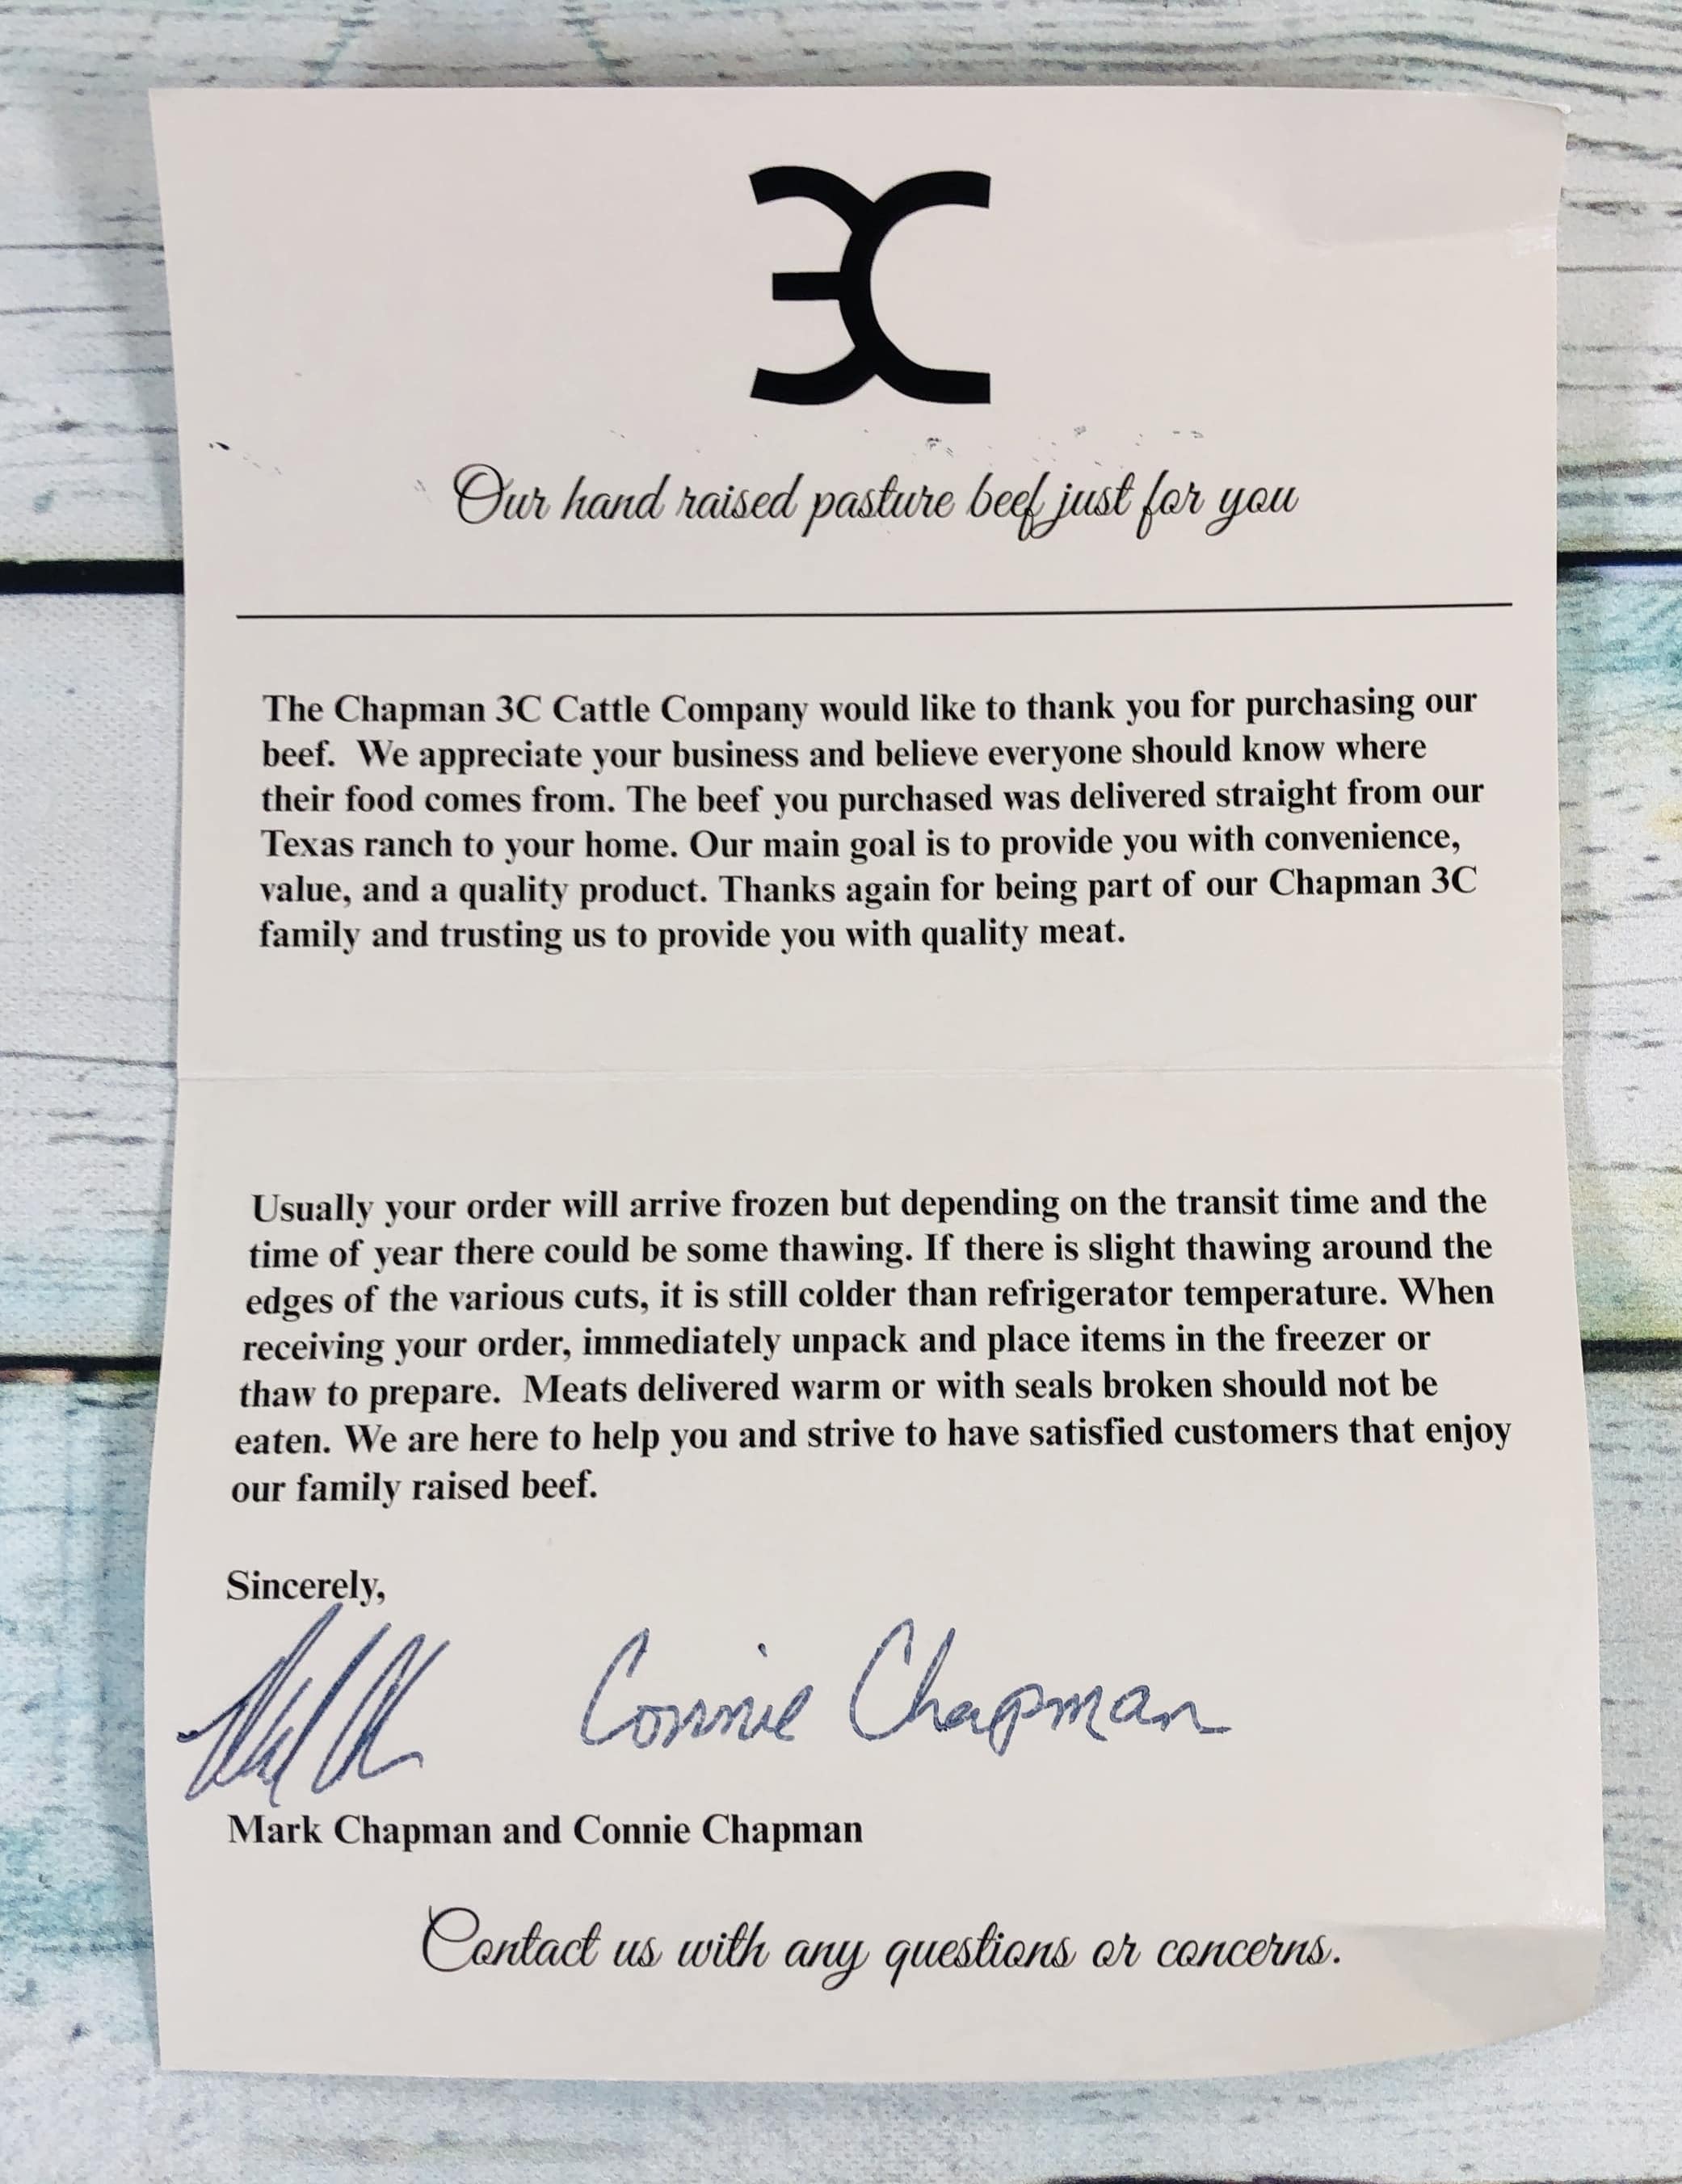 3C
Our hand raised pasture beef just for you
The Chapman 3C Cattle Company would like to thank you for purchasing our
beef.  We appreciate your business and believe everyone should know where
their food comes from. The beef you purchased was delivered straight from our
Texas ranch to your home. Our main goal is to provide you with convenience,
value, and a quality product. Thanks again for being part of our Chapman 3C
family and trusting us to provide you with quality meat.
Usually your order will arrive frozen but depending on the transit time and the
time of year there could be some thawing. If there is slight thawing around the
edges of the various cuts, it is still colder than refrigerator temperature. When
receiving your order, immediately unpack and place items in the freezer or
thaw to prepare.  Meats delivered warm or with seals broken should not be
eaten. We are here to help you and strive to have satisfied customers that enjoy
our family raised beef.
Sincerely,
Connie Chapman
Mark Chapman and Connie Chapman
Contact us with any questions or concerns.